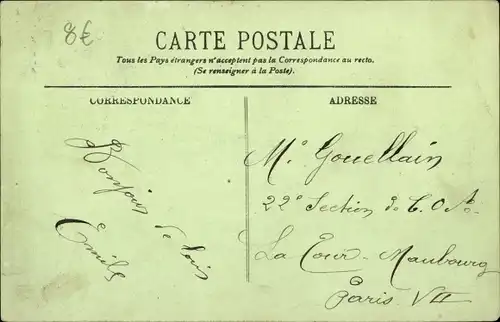 8€
CARTE POSTALE
Tous les Pays étrangers n'acceptent pas la Correspondance au recto.
(Se renseigner à la Poste).
CORRESPONDANCE
ADRESSE
Bonjour de
Emile
Mr Gouellain
22e Section de C. O. A.
La Tour-Maubourg
Paris VII